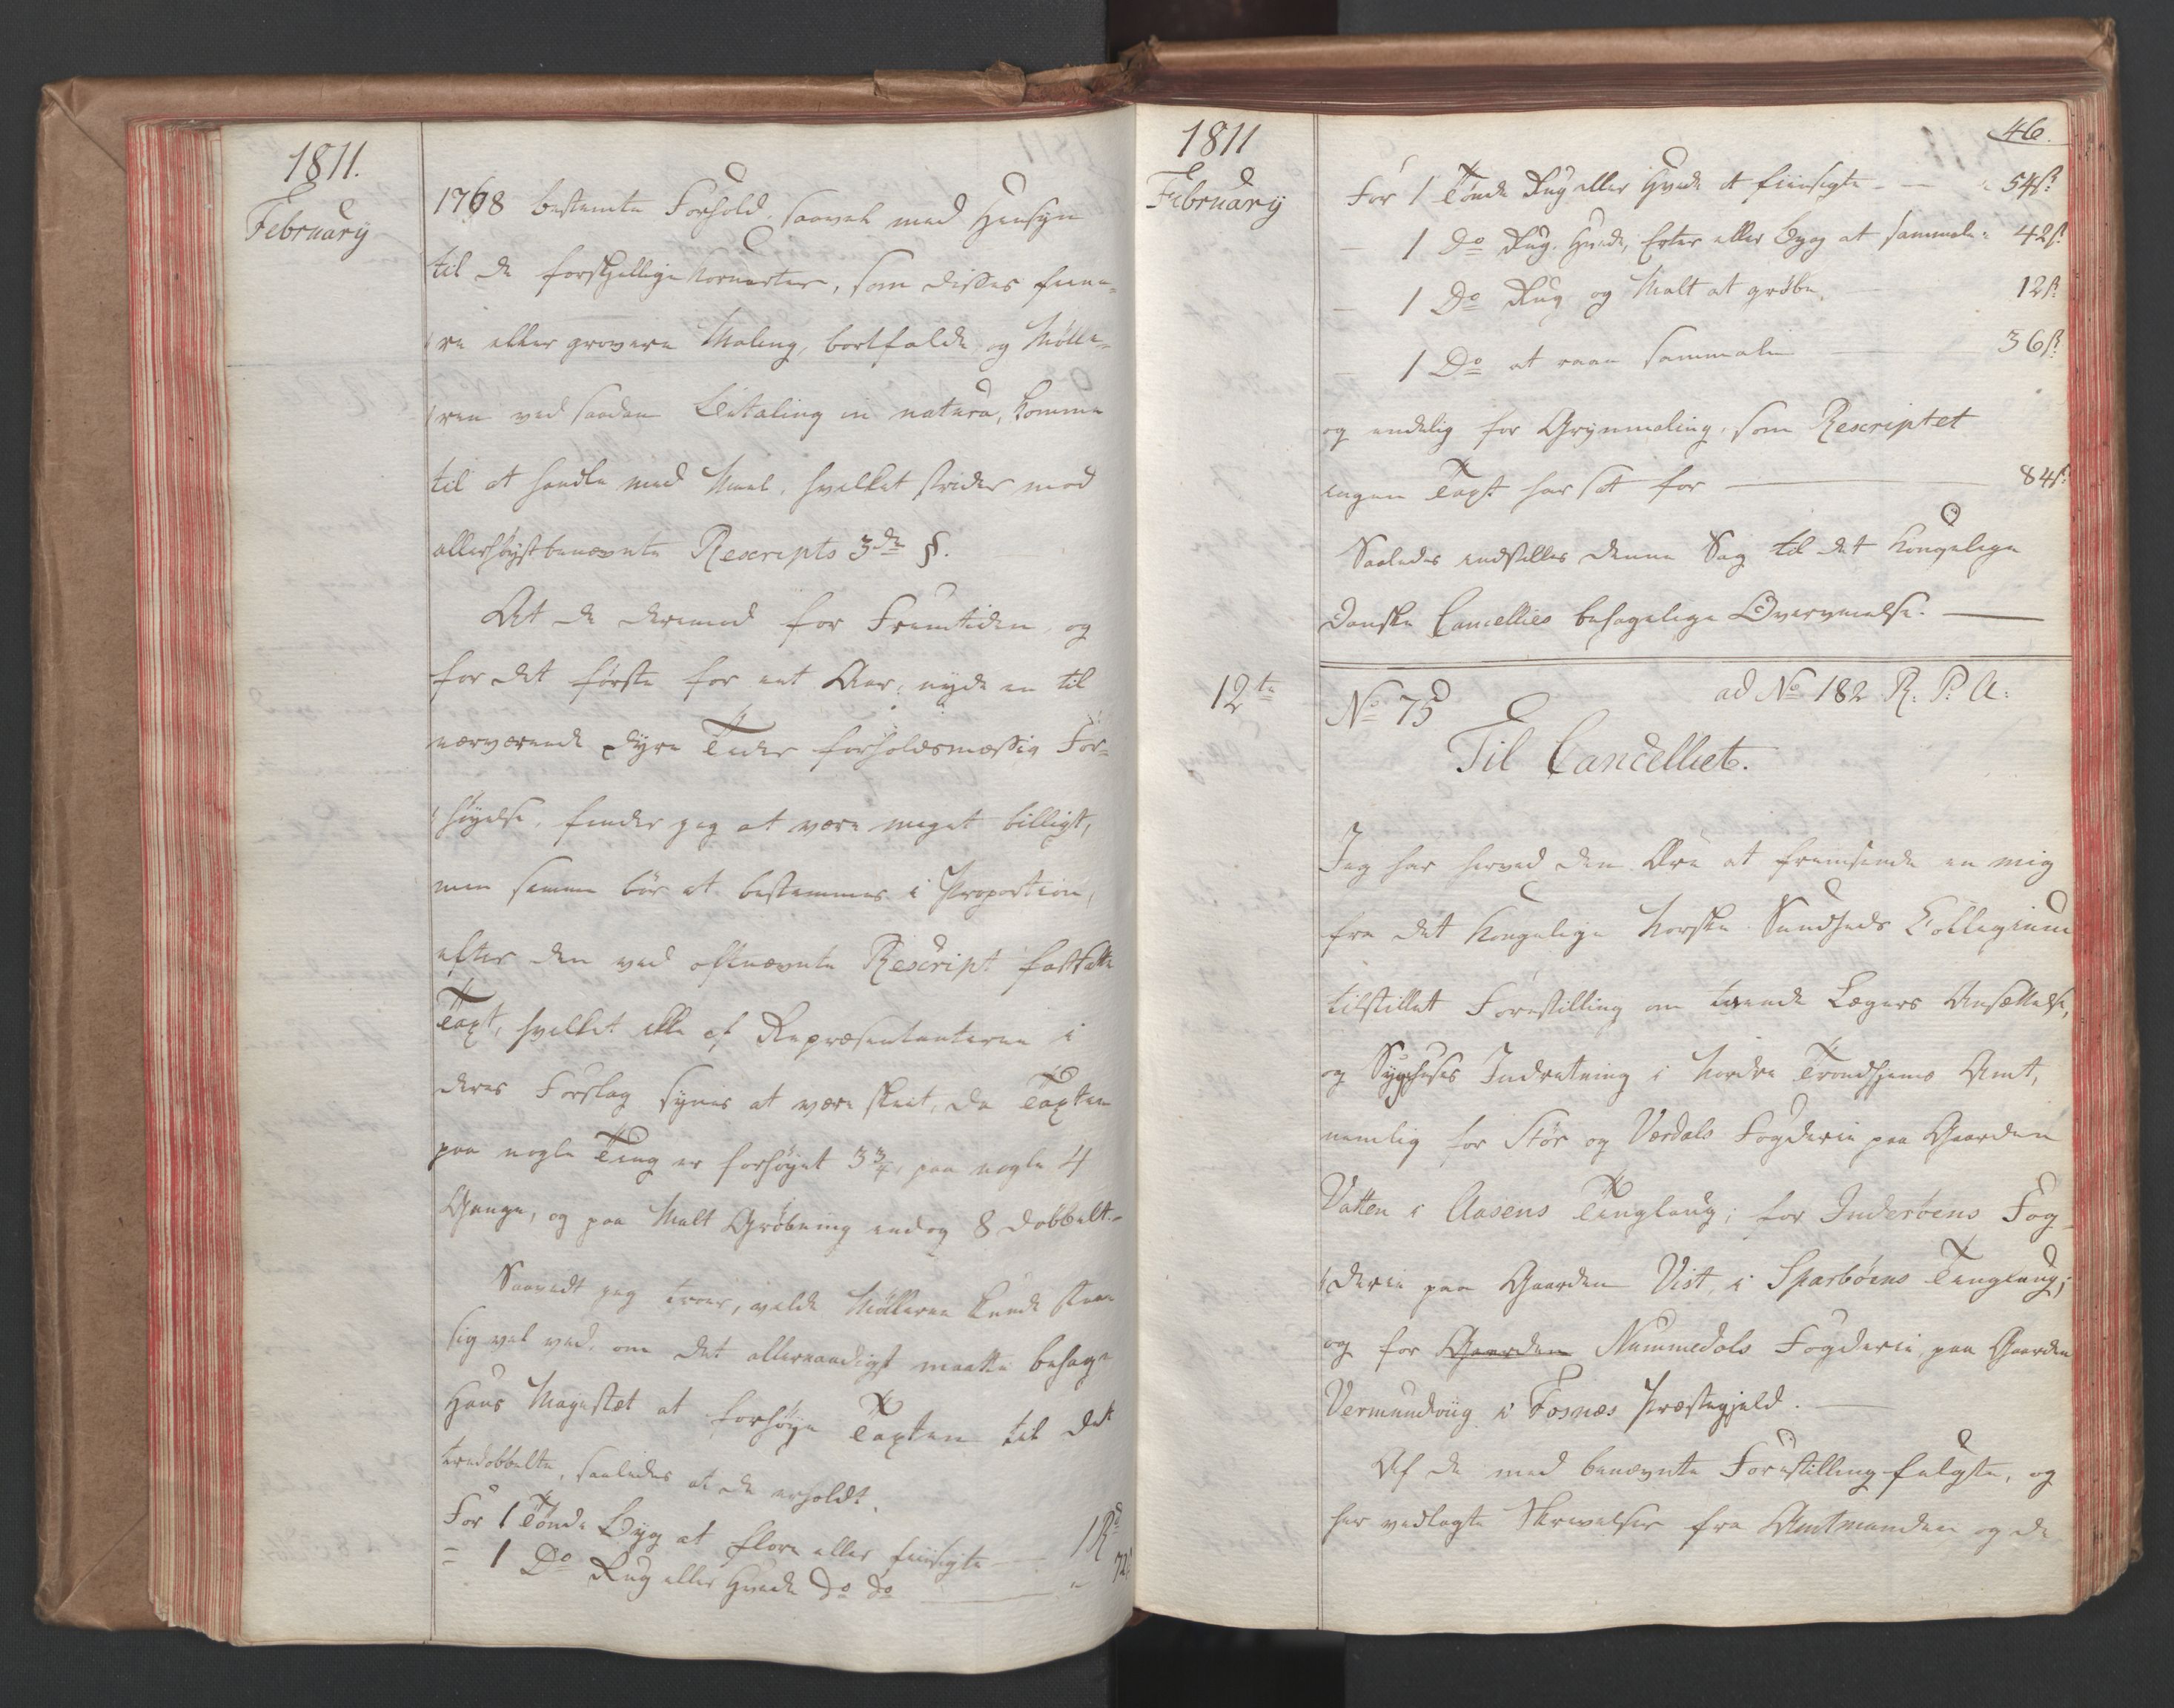 1811.
February
1768 bestemte Forhold, saavel med Hensyn
til de forskjellige Kornarter, som disses fine-
re eller grovere Maling, bortfalde, og Mølle-
ren ved saadan Betaling in natura, komme
til at handle med Meel, hvilket strider mod
allerhøystbenævnte Rescripts 3de §.
At de derimod for Fremtiden, og
for det første for eet Aar, nyde en til
nærværende dyre Tider forholdsmæssig For-
høyelse, finder jeg at være meget billigt,
men samme bør at bestemmes i Proportion,
efter den ved oftnævnte Rescript fastsatte
Taxt, hvilket ikke af Repræsentanterne i
deres Forslag synes at være skeet, da Taxten
paa nogle Ting er forhøyet 3 3/4, paa nogle 4
Gange, og paa Malt Grøbning endog 8 dobbelt.
Saavidt jeg troer, vilde Møllerne kunde staae
sig vel ved, om det allernaadigst maatte behage
Hans Majestæt at forhøye Taxten til det
tredobbelte, saaledes at de erholdt.
For 1 Tønde Byg at flore eller fiinsigte — 1 Rd
= 1 Do Rug eller Hvede do do — " 72 s
1811
February
46.
For 1 Tønde Rug eller Hvede at fiinsigte — — " 54 s:
— 1 Do Rug, Hvede, Erter eller Byg at sammale = 42 s
— 1 Do Rug og Malt at grøbe, — 12 s:
— 1 Do at raae sammale — 36 s:
og endelig for Grynmaling, som Rescriptet
ingen Taxt har sat for — 84 s:
Saaledes indstilles denne Sag til det Kongelige
Danske Cancellies behagelige Overveielse. —
12te
No 75
ad No 182 R: P: A:
Til Cancelliet.
Jeg har herved den Ære at fremsende en mig
fra det Kongelige Norske Sundheds Collegium
tilstillet Forestilling om trende Lægers Ansættelse,
og Sygehuses Indretning i Nordre Trondhjems Amt,
nemlig for Stør og Værdals Fogderie paa Gaarden
Vatten i Aasens Tinglaug; for Inderøens Fog-
derie paa Gaarden Vist, i Sparbøens Tinglaug;
og for Gaarden Nummedals Fogderie, paa Gaarden
Vermundvig i Fosnæs Præstegjeld. —
Af de med benævnte Forestilling fulgte, og
her vedlagte Skrivelser fra Amtmanden og de